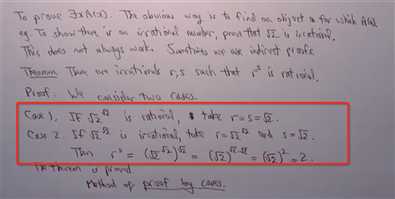 To prove ∃x A(x). The obvious way is to find an object a for which A(a)
eg. To show there is an irrational number, prove that √2 is irrational.
This does not always work. Sometimes we use indirect proofs
Theorem There are irrationals r, s such that r^s is rational.
Proof. We consider two cases.
Case 1. If √2^√2 is rational, take r = s = √2.
Case 2. If √2^√2 is irrational, take r = √2^√2 and s = √2.
Then r^s = (√2^√2)^√2 = (√2)^√2·√2 = (√2)^2 = 2.
The theorem is proved
Method of proof by cases.